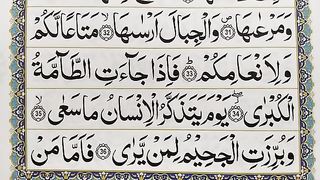 وَمَرۡعٰىهَا ۝٣١ وَالۡجِبَالَ اَرۡسٰىهَا ۝٣٢ مَتَاعًا لَّكُمۡ
وَلِاَنۡعَامِكُمۡ ۝٣٣ فَاِذَا جَآءَتِ الطَّآمَّةُ
الۡكُبۡرٰى ۝٣٤ يَوۡمَ يَتَذَكَّرُ الۡاِنۡسَانُ مَا سَعٰى ۝٣٥
وَبُرِّزَتِ الۡجَحِيۡمُ لِمَنۡ يَّرٰى ۝٣٦ فَاَمَّا مَنۡ